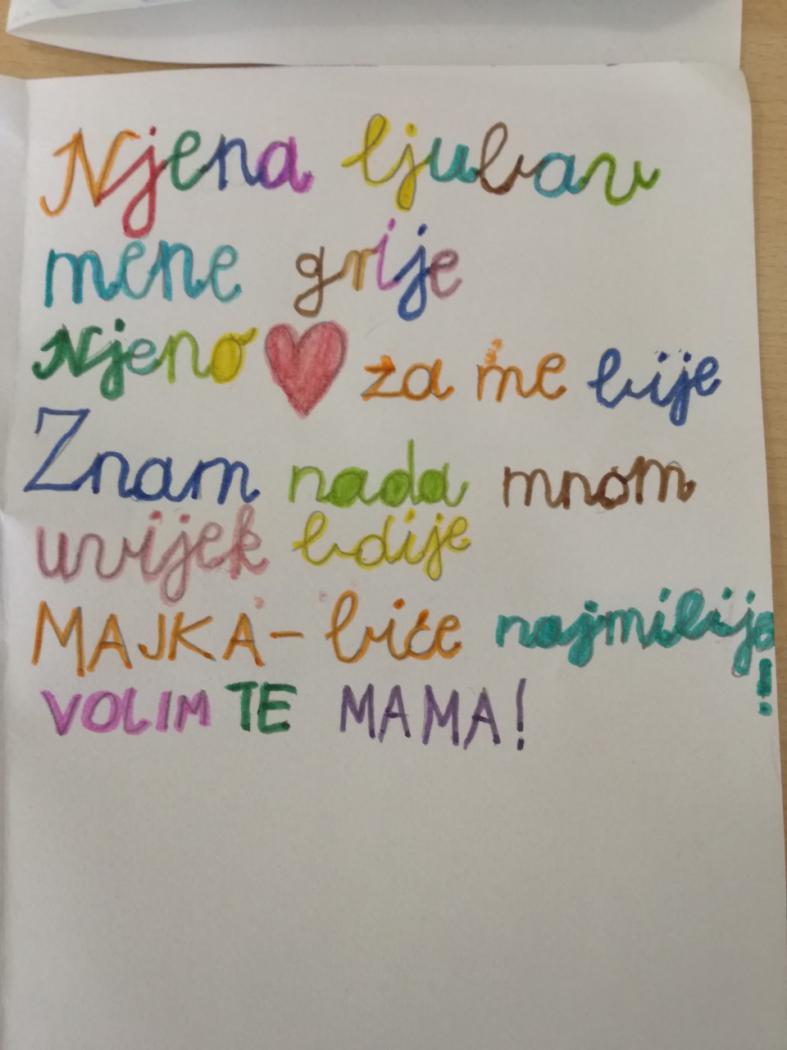 Njena ljubav
mene grije
Njeno ❤ za me bije
Znam nada mnom
uvijek bdije
MAJKA - biće najmilije!
VOLIM TE MAMA!